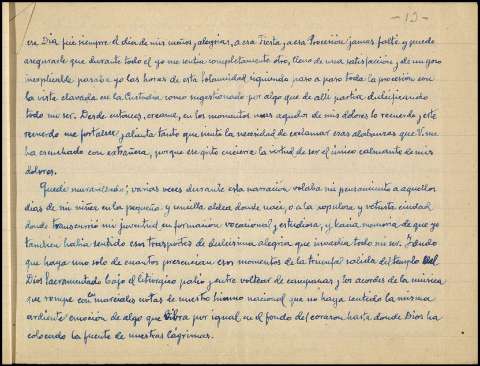 -12-
ese Día fué siempre el día de mis sueños y alegrías, a esa Fiesta y a esa Procesión jamas falté y puedo
asegurarle que durante todo el yo me sentía completamente otro, lleno de una satisfacción y de un gozo
inexplicable pasaba yo las horas de esta Solemnidad siguiendo paso a paso toda la procesión con
la vista clavada en la Custodia como sugestionado por algo que de allí partía dulcificando
todo mi ser. Desde entonces, creame, en los momentos mas agudos de mis dolores lo recuerdo y este
recuerdo me fortalece y alienta tanto que siento la necesidad de exclamar esas alabanzas que V. me
ha escuchado con extrañeza, porque ese grito encierra la virtud de ser el único calmante de mis
dolores.
Quedé maravillado; varias veces durante esta narración volaba mi pensamiento a aquellos
días de mi niñez en la pequeña y sencilla aldea donde nací, o a la populosa y vetusta ciudad
donde transcurrió mi juventud en formación vocacional y estudiosa, y hacía memoria de que yo
tambien había sentido esos trasportes de dulcísima alegría que invadía todo mi ser. Y dudo
que haya uno solo de cuantos presencian esos momentos de la triunfal salida del templo del
Dios Sacramentado bajo el litúrgico palio y entre voltear de campanas, y los acordes de la música
que rompe con marciales notas de nuestro himno nacional que no haya sentido la misma
ardiente emoción de algo que vibra por igual en el fondo del corazon hasta donde Dios ha
colocado la fuente de nuestras lágrimas.